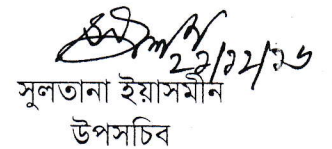 ২১/১২/১৬
সুলতানা ইয়াসমীন
উপসচিব